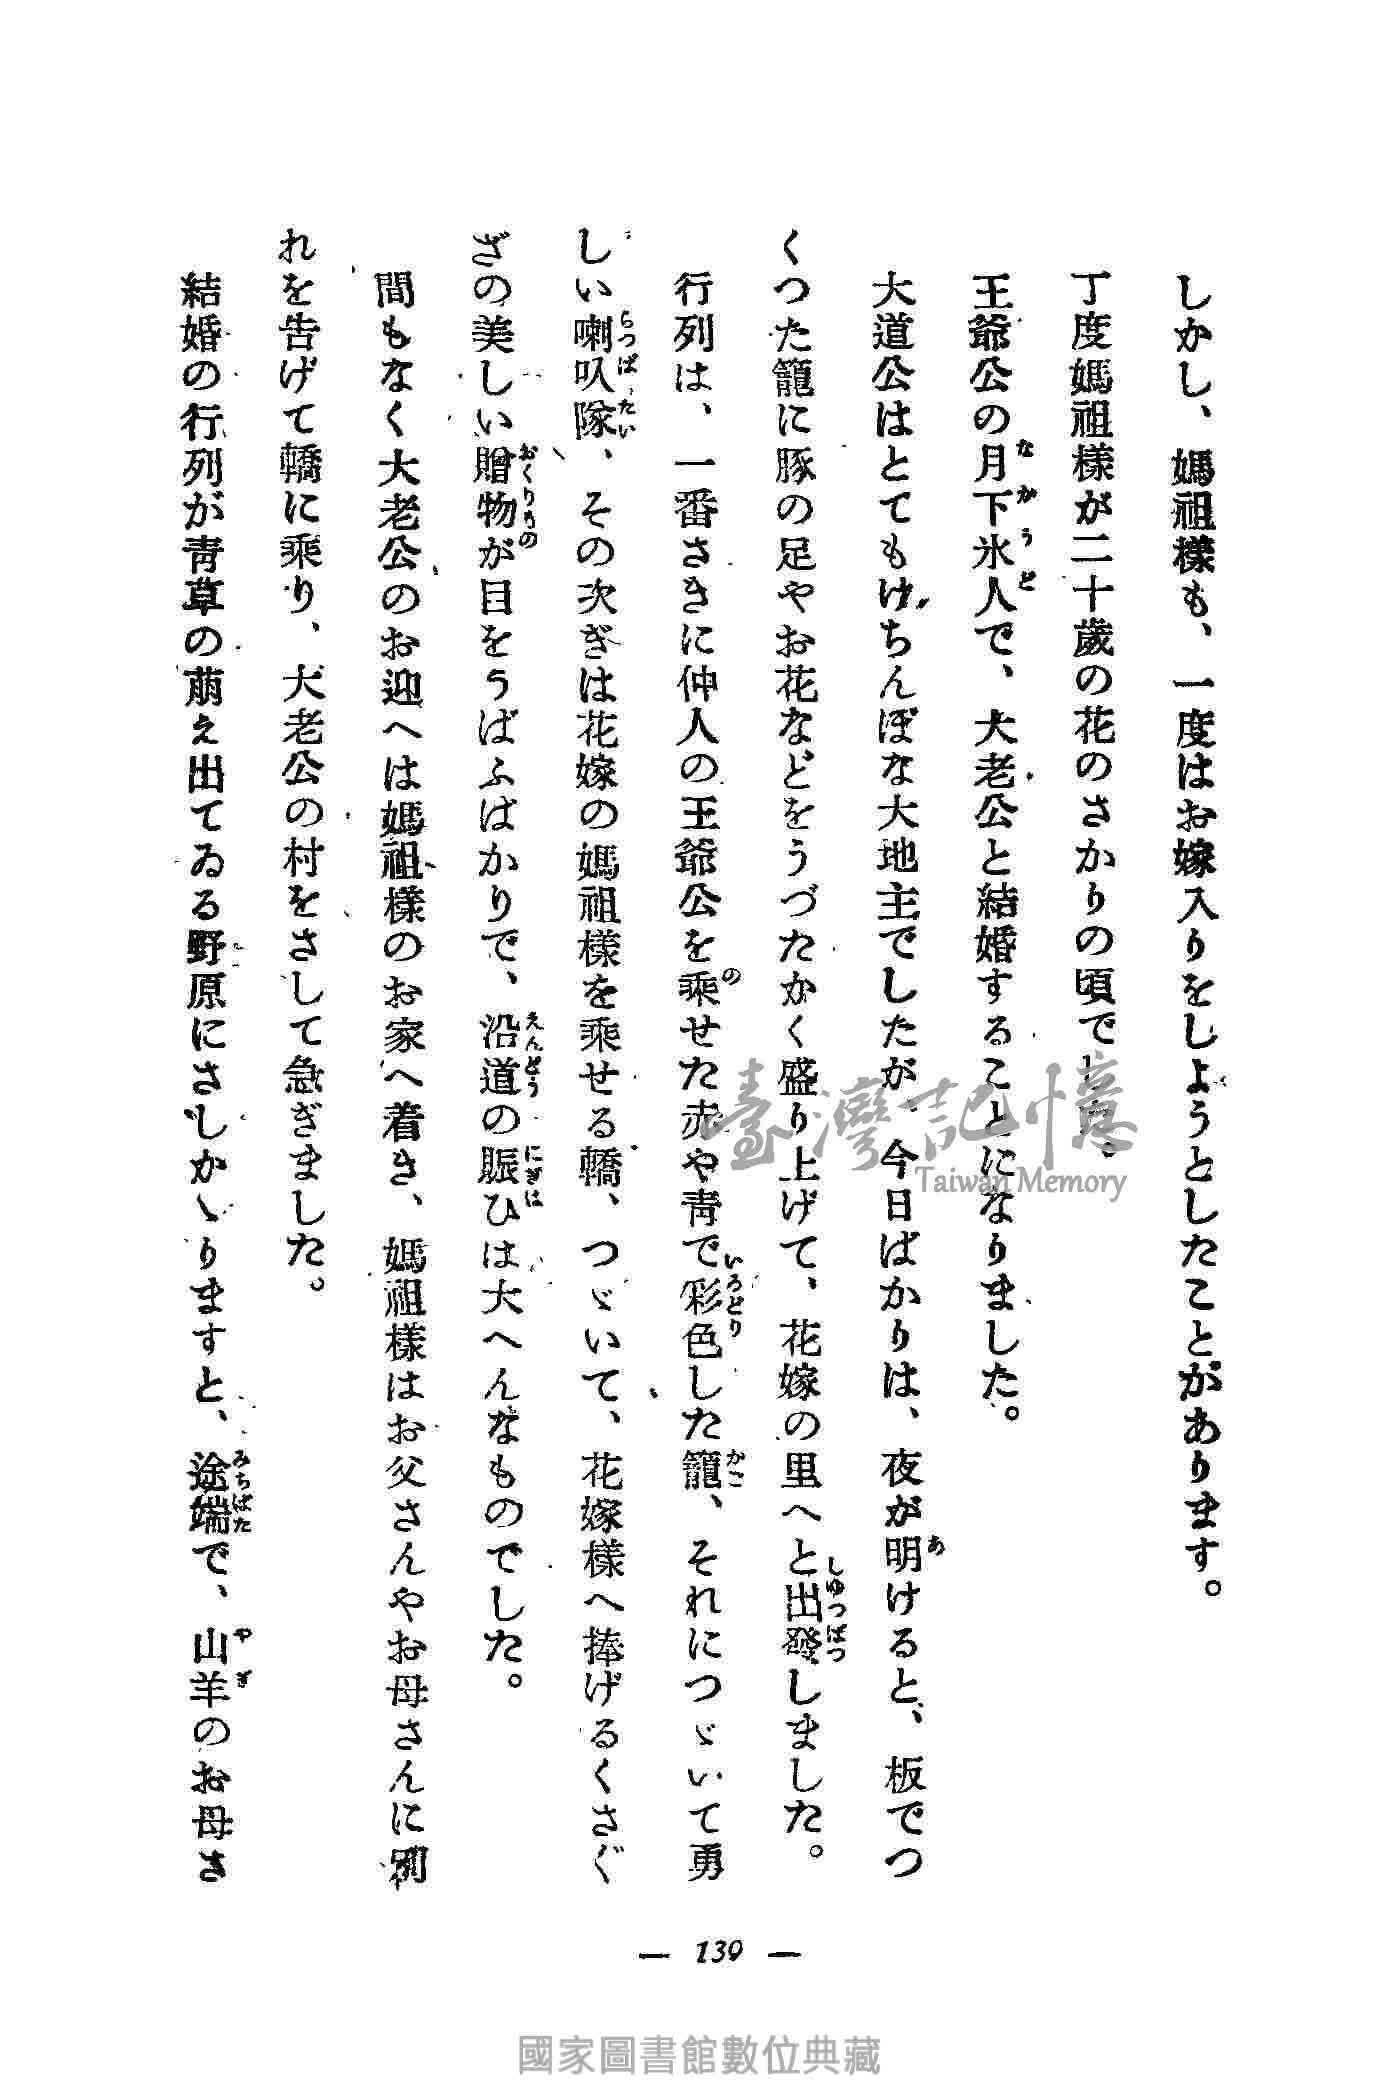 しかし、媽祖樣も、一度はお嫁入りをしようとしたことがあります。
丁度媽祖樣が二十歲の花のさかりの頃で
王爺公の月下氷人で、大老公と結婚することになりました。
なかうど
大道公はとてもけちんぼな大地主でしたが、今日ばかりは、夜が明けると、板でつ
あ
くつた籠に豚の足やお花などをうづたかく盛り上げて、花嫁の里へと出發しました。
しゆつぱつ
行列は、一番さきに仲人の王爺公を乘せた赤や靑で彩色した籠、それにつゞいて勇
の いろどり かご
しい喇叭隊、その次ぎは花嫁の媽祖樣を乘せる轎、つゞいて、花嫁樣へ捧げるくさぐ
らつぱたい
ざの美しい贈物が目をうばふばかりで、沿道の賑ひは大へんなものでした。
おくりもの えんどう にぎは
間もなく大老公のお迎へは媽祖樣のお家へ着き、媽祖樣はお父さんやお母さんに別
れを告げて轎に乘り、大老公の村をさして急ぎました。
結婚の行列が靑草の萠え出てゐる野原にさしかゝりますと、途端で、山羊のお母さ
みちばた やぎ
— 139 —
臺灣記憶
Taiwan Memory
國家圖書館數位典藏